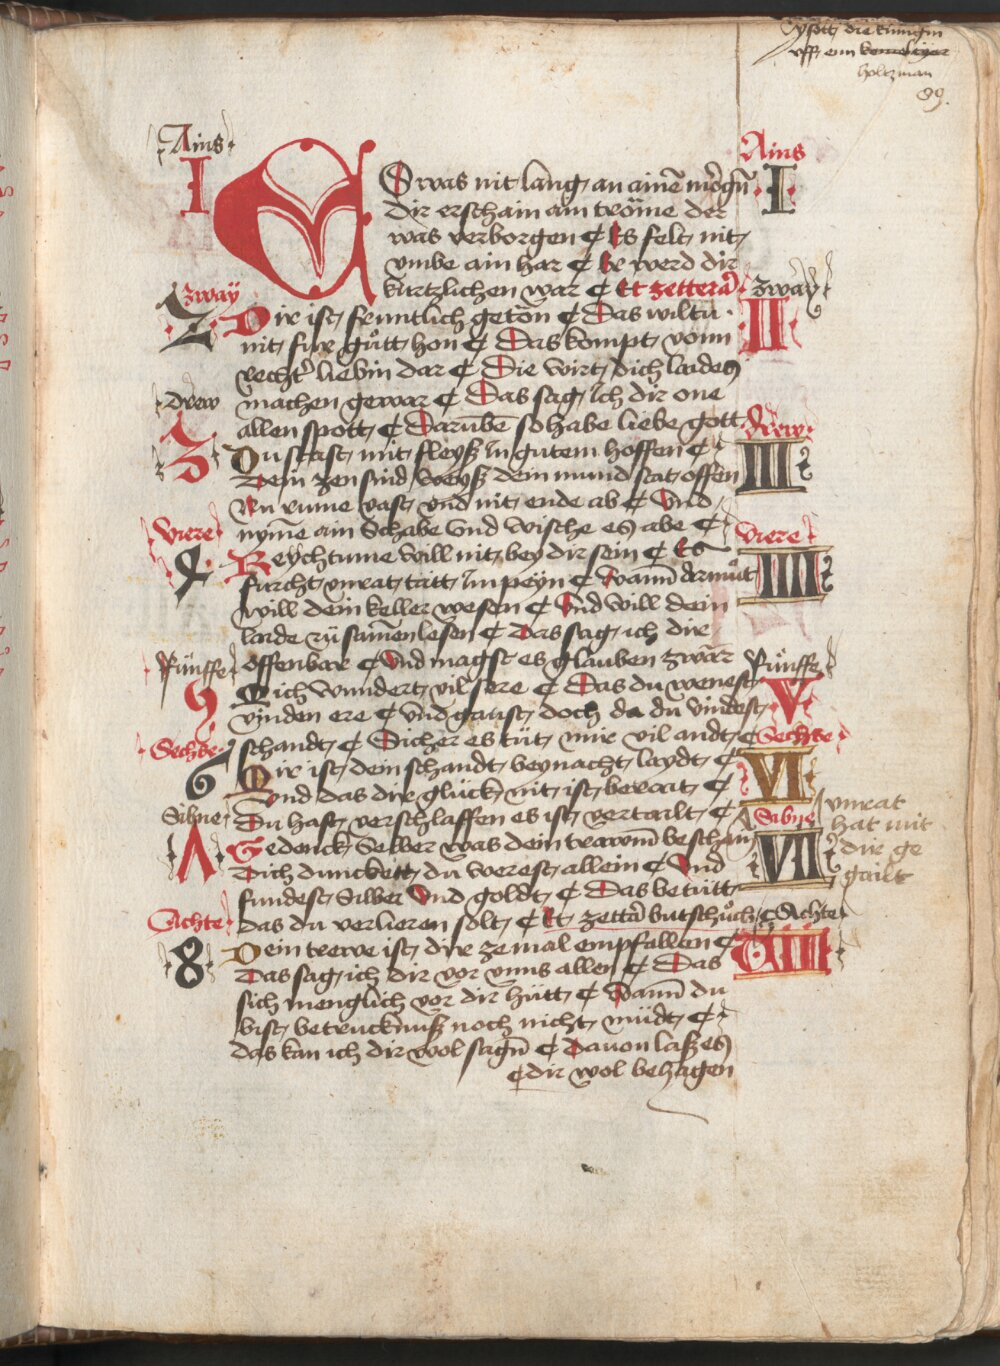 ysott die künigin
uff ein
holtzman
89.
Ains
I
Ains
I
Es was nit lang an ainē morgñ
dir erschain ain tröme der
was verborgen ¢ Es felt nit
vmbe ain har ¢ Er werd dir
kürtzlichen war ¢ Et zetterā
zway
2
zway
II
Dir ist fruntlich geton ¢ Das wiltu
nit fur gůtt hon ¢ Das kompt vonn
recht' liebin dar ¢ Die wirt dich laides
machen gewar ¢ Das sag ich dir one
allen spott ¢ Darūbē so habe liebe gott
drew
3
drew
III
Du stast mit fleyß In gutem hoffen ¢
Dein zen sind weyß dein mund stat offen
Nu rume vast vnd nit ende ab ¢ Vnd
nym̄e ain Schabe vnd wische es abe ¢
viere
4
viere
IIII
Reychtume will nit bey dir sein ¢ Es
furcht vnrat tätt Im peyn ¢ Wann̄ armůt
will dein keller wesen ¢ Vnd will dein
laide zů samen lesen ¢ Das sag ich dir
offenbar ¢ Vnd magst es glauben zwar
fünffe
5
fünffe
V
Mich wundert vil sere ¢ Das du wenest
vinden ere ¢ Vnd gaust doch da du vindest
schandt ¢ Sicher es tüt mir vil andt ¢
Sechte
6
Sechte
VI
Mir ist dein schandt beynacht laydt ¢
Vnd das dir glück nit ist berait ¢
Du hast verschlaffen es ist vertailt ¢
vnrat
hat mit
dir ge
gailt
Sibne
7
Sibne
VII
Gedenck Selber was dein trawm̄ beschain
Dich dunckett du werest allein ¢ Vnd
fundest Silber Vnd goldt ¢ Das betütt
das du verlieren solt ¢ Et zettā butschůch ¢
Achte
8
Achte
VIII
Dein trewe ist dir zemal empfallen ¢
Das sag ich dir vor vnns allen ¢ Das
sich menglich vor dir hütt ¢ Wann̄ du
bist betrucknuß noch nicht müdt ¢
das kan ich dir wol sagn̄ ¢ Dauon laß es
¢ dir wol behagen